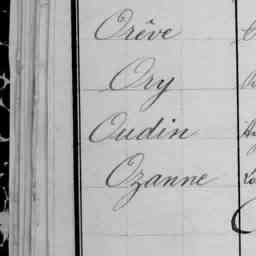 Orêve
Ory
Oudin
Ozanne